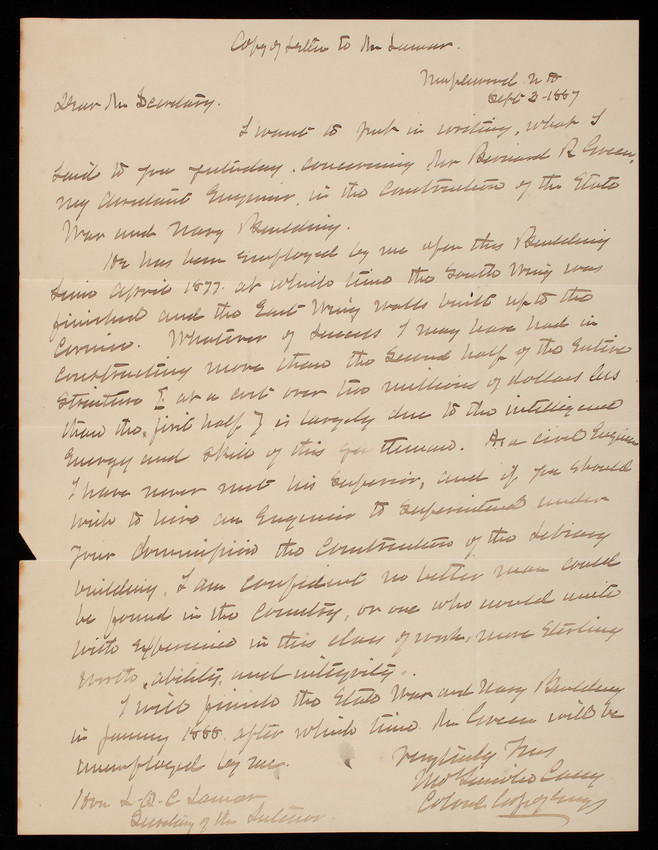 Copy of letter to Mr Lamar.
Maplewood N H
Sept 3-1887
Dear Mr Secretary.
I want to put in writing, what I
said to you yesterday, concerning Mr Bernard R Green,
my Assistant Engineer, in the Construction of the State
War and Navy Building.
He has been employed by me upon this Building
since April 1877. at which time the South Wing was
finished and the East Wing walls built up to the
Cornice. Whatever of success I may have had in
constructing more than the second half of the Entire
Structure [at a cost over two millions of dollars less
than the first half] is largely due to the intelligence
Energy and skill of this gentleman. As a civil Engineer
I have never met his superior, and if you should
wish to hire an Engineer to superintend under
your Commission the Construction of the Library
building, I am confident no better man could
be found in the Country, or one who would unite
with experience in this class of work, more Sterling
worth, ability, and integrity.
I will finish the State War and Navy Building
in January 1888. after which time Mr Green will be
unemployed by me.
Very truly Yours
Thos Lincoln Casey
Colonel Corps of Engrs
Hon L.Q.C Lamar
Secretary of the Interior.